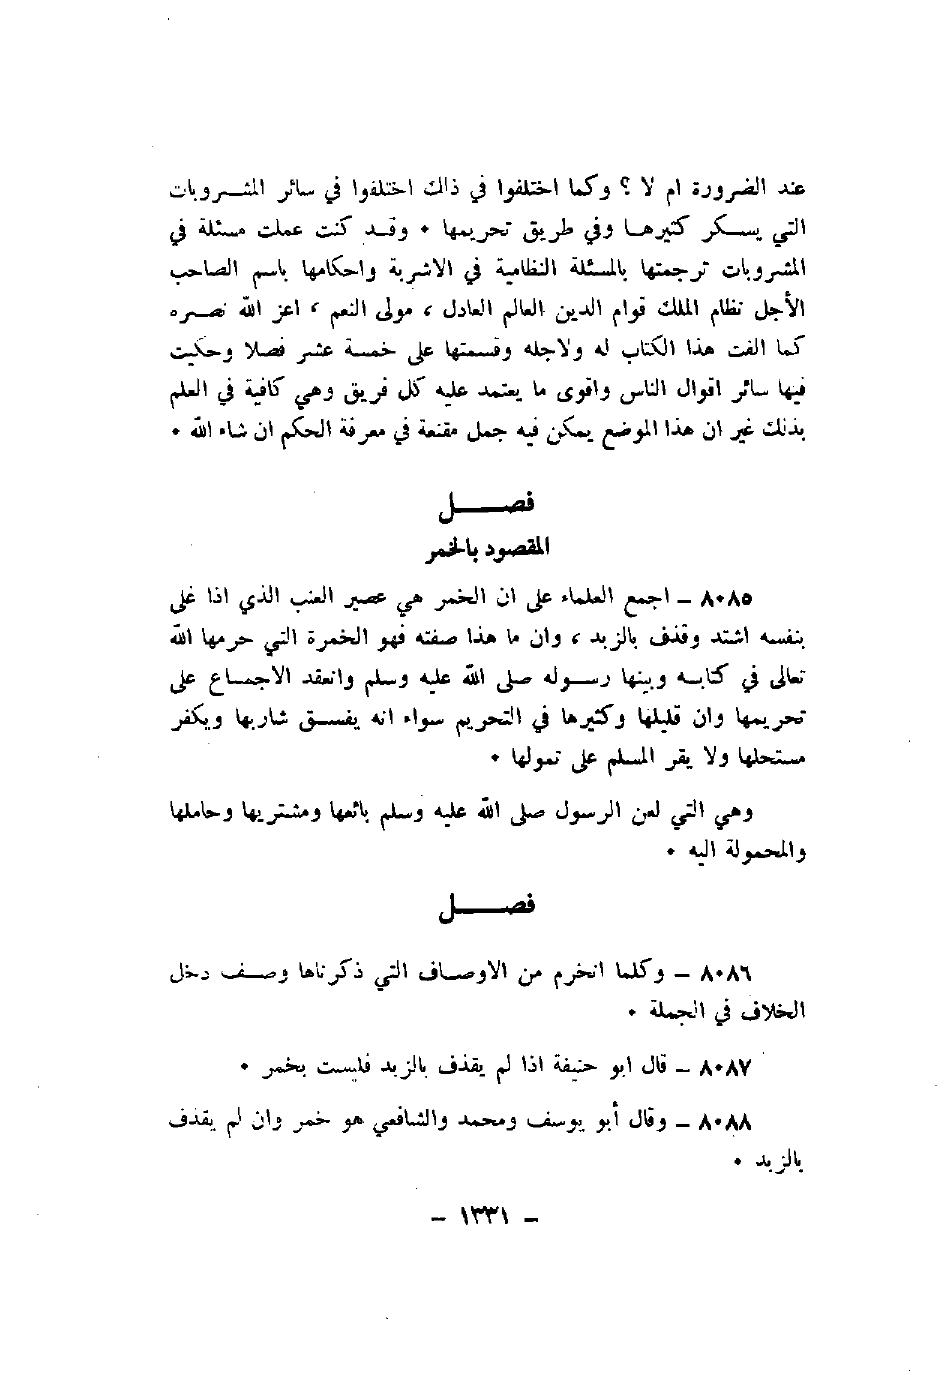 عند الضرورة ام لا ؟ وكما اختلفوا في ذالك اختلفوا في سائر المشروبات
التي يسكر كثيرها وفي طريق تحريمها ٠ وقد كنت عملت مسئلة في
المشروبات ترجمتها بالمسئلة النظامية في الاشربة واحكامها باسم الصاحب
الأجل نظام الملك قوام الدين العالم العادل ، مولى النعم ، اعز الله نصره
كما الفت هذا الكتاب له ولاجله وقسمتها على خمسة عشر فصلا وحكيت
فيها سائر اقوال الناس واقوى ما يعتمد عليه كل فريق وهي كافية في العلم
بذلك غير ان هذا الموضع يمكن فيه جمل مقنعة في معرفة الحكم ان شاء الله ٠
فصل
المقصود بالخمر
٨٠٨٥ – اجمع العلماء على ان الخمر هي عصير العنب الذي اذا غلى
بنفسه اشتد وقذف بالزبد ، وان ما هذا صفته فهو الخمرة التي حرمها الله
تعالى في كتابه وبينها رسوله صلى الله عليه وسلم وانعقد الاجماع على
تحريمها وان قليلها وكثيرها في التحريم سواء انه يفسق شاربها ويكفر
مستحلها ولا يقر المسلم على تمولها ٠
وهي التي لعن الرسول صلى الله عليه وسلم بائعها ومشتريها وحاملها
والمحمولة اليه ٠
فصل
٨٠٨٦ – وكلما انخرم من الاوصاف التي ذكرناها وصف دخل
الخلاف في الجملة ٠
٨٠٨٧ – قال ابو حنيفة اذا لم يقذف بالزبد فليست بخمر ٠
٨٠٨٨ – وقال أبو يوسف ومحمد والشافعي هو خمر وان لم يقذف
بالزبد ٠
– ١٣٣١ –